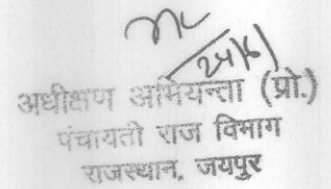 अधीक्षण अभियन्ता (प्रो.)
पंचायती राज विभाग
राजस्थान, जयपुर